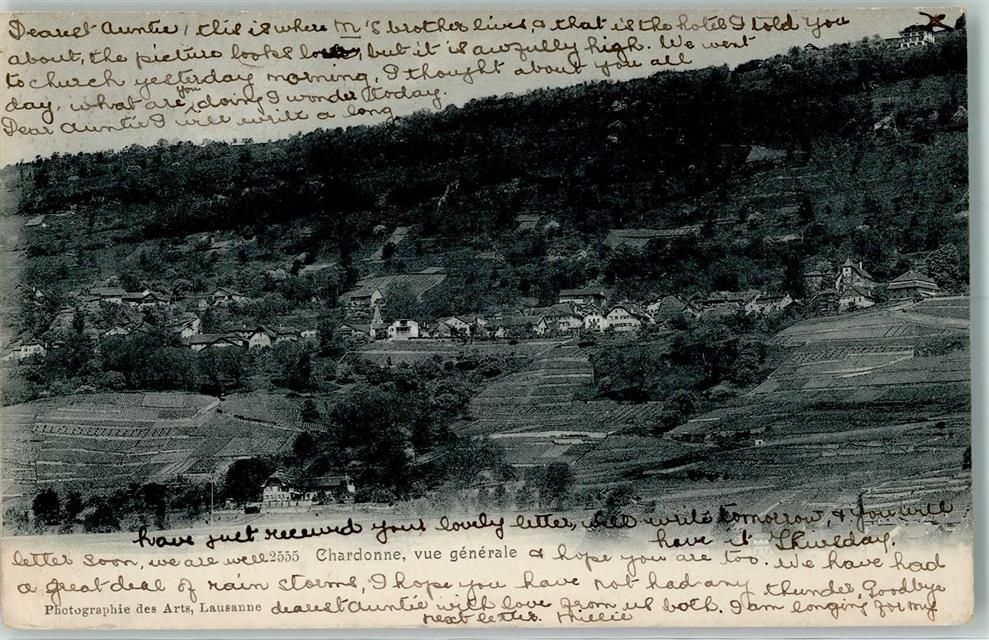 Dearest Auntie, this is where M's brother lives, & that is the hotel I told you
about, the picture looks low, but it is awfully high. We went
to church yesterday morning, I thought about you all
day, what are you doing I wonder today.
Dear Auntie I will write a long
have just received your lovely letter, will write tomorrow, & you will
have it Thursday.
letter soon, we are well & hope you are too. We have had
2555 Chardonne, vue générale
a great deal of rain storms, I hope you have not had any thunder, Goodbye
Photographie des Arts, Lausanne
dearest Auntie with love from us both. I am longing for my
next letter.